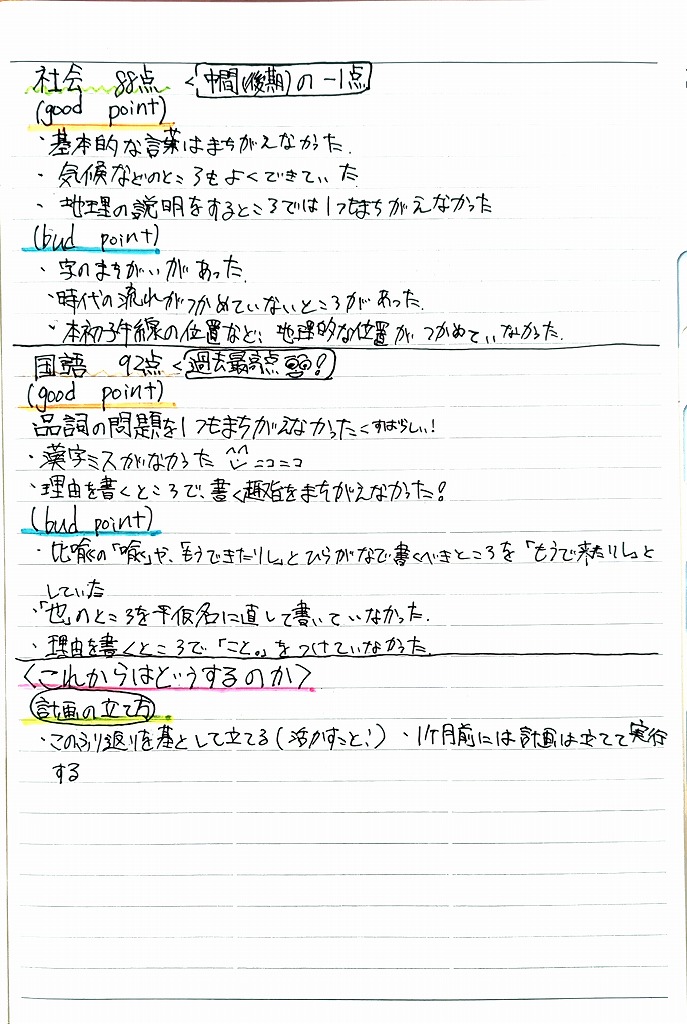 社会 88点 <中間(後期)の -1点
(good point)
・基本的な言葉はまちがえなかった.
・気候などのところもよくできていた
・地理の説明をするところでは1つもまちがえなかった
(bud point)
・字のまちがいがあった.
・時代の流れがつかめていないところがあった.
・本初子午線の位置など、地理的な位置がつかめていなかった.
国語 92点 <過去最高点!
(good point)
品詞の問題を1つもまちがえなかった<すばらしい!
・漢字ミスがなかった ニコニコ
・理由を書くところで、書く趣旨をまちがえなかった!
(bud point)
・比喩の「喩」や、「もうできたりし」とひらがなで書くべきところを「もうで来たりし」と
していた
・「也」のところを平仮名に直して書いていなかった.
・理由を書くところで「こと。」をつけていなかった.
<これからはどうするのか>
計画の立て方
・このふり返りを基として立てる(活かすこと!) ・1ヶ月前には計画は立てて実行
する